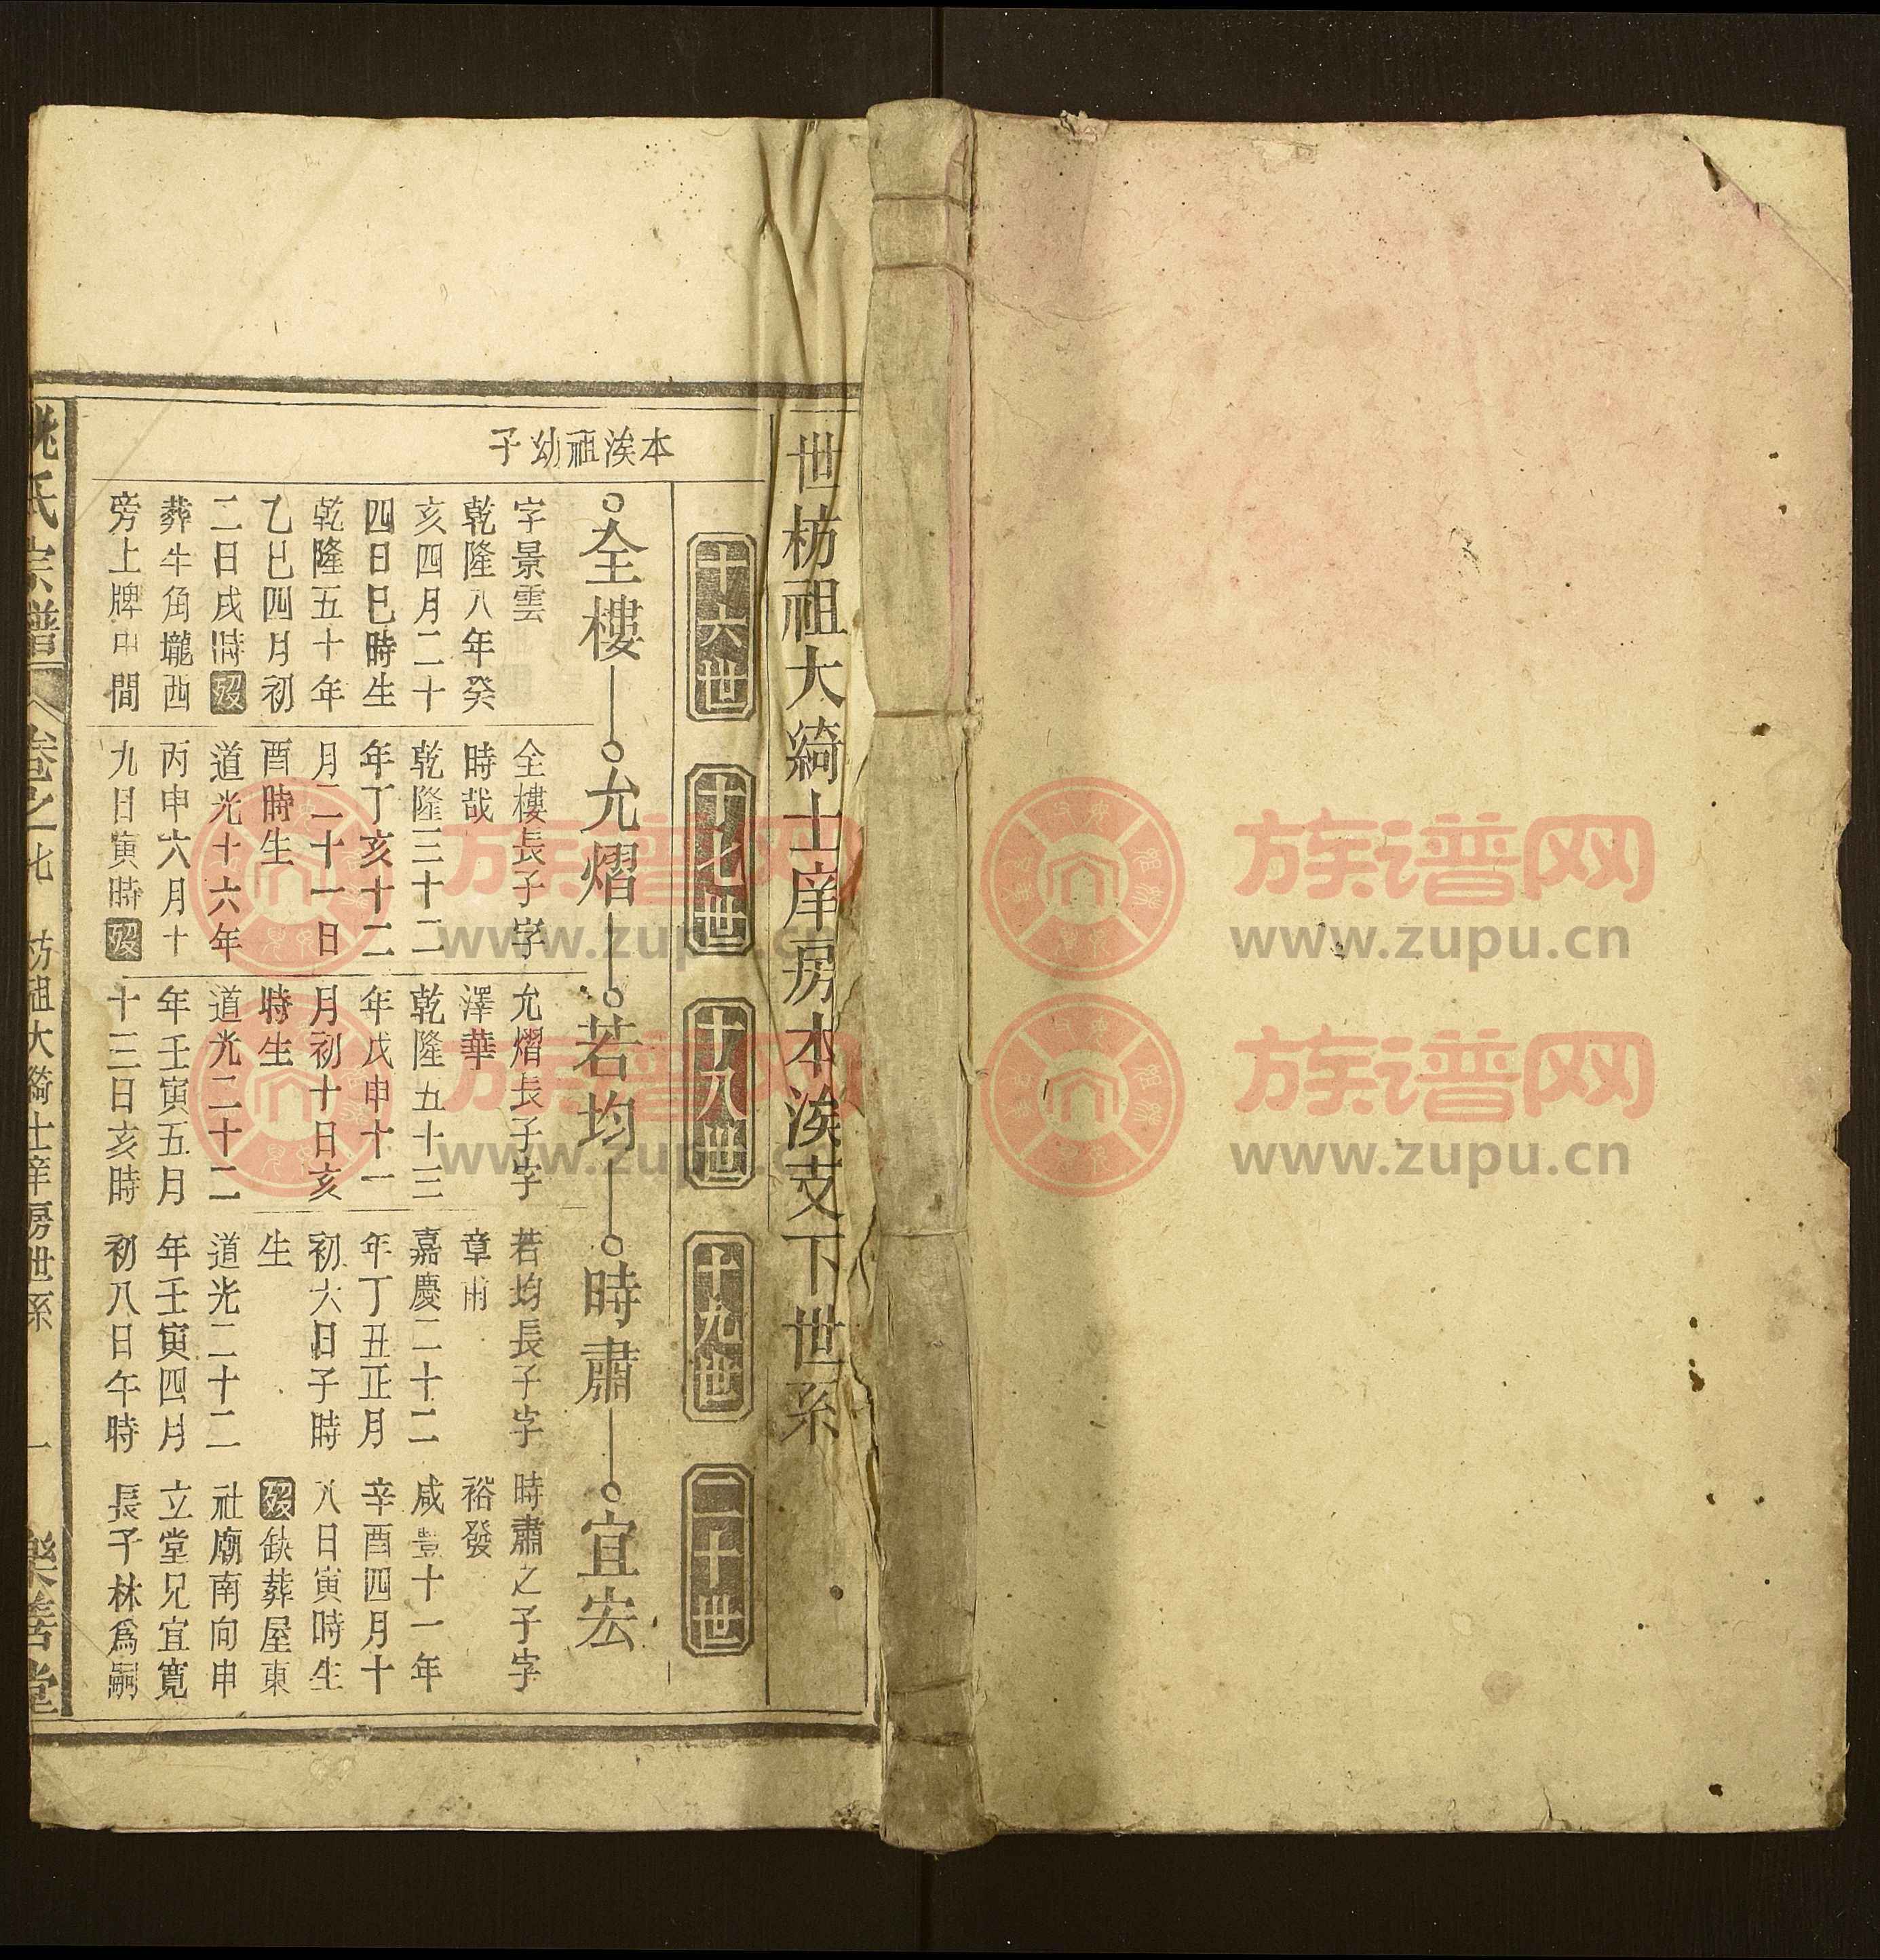 世枋祖大綺士庠房本涘支下世系
十六世
十七世
十八世
十九世
二十世
本涘祖幼子
全樓
允熠
若均
時肅
宜宏
字景雲
乾隆八年癸
亥四月二十
四日巳時生
乾隆五十年
乙巳四月初
二日戌時歿
葬牛角壠西
旁上牌中間
全樓長子字
時哉
乾隆三十二
年丁亥十二
月二十一日
酉時生
道光十六年
丙申六月十
九日寅時歿
允熠長子字
澤華
乾隆五十三
年戊申十一
月初十日亥
時生
道光二十二
年壬寅五月
十三日亥時
若均長子字
章甫
嘉慶二十二
年丁丑正月
初六日子時
生
道光二十二
年壬寅四月
初八日午時
時肅之子字
裕發
咸豐十一年
辛酉四月十
八日寅時生
歿缺葬屋東
社廟南向申
立堂兄宜寬
長子林爲嗣
姚氏宗譜
卷之七 枋祖大綺士庠房世系 一 樂善堂
族谱网
www.zupu.cn
族谱网
www.zupu.cn
族谱网
www.zupu.cn
族谱网
www.zupu.cn